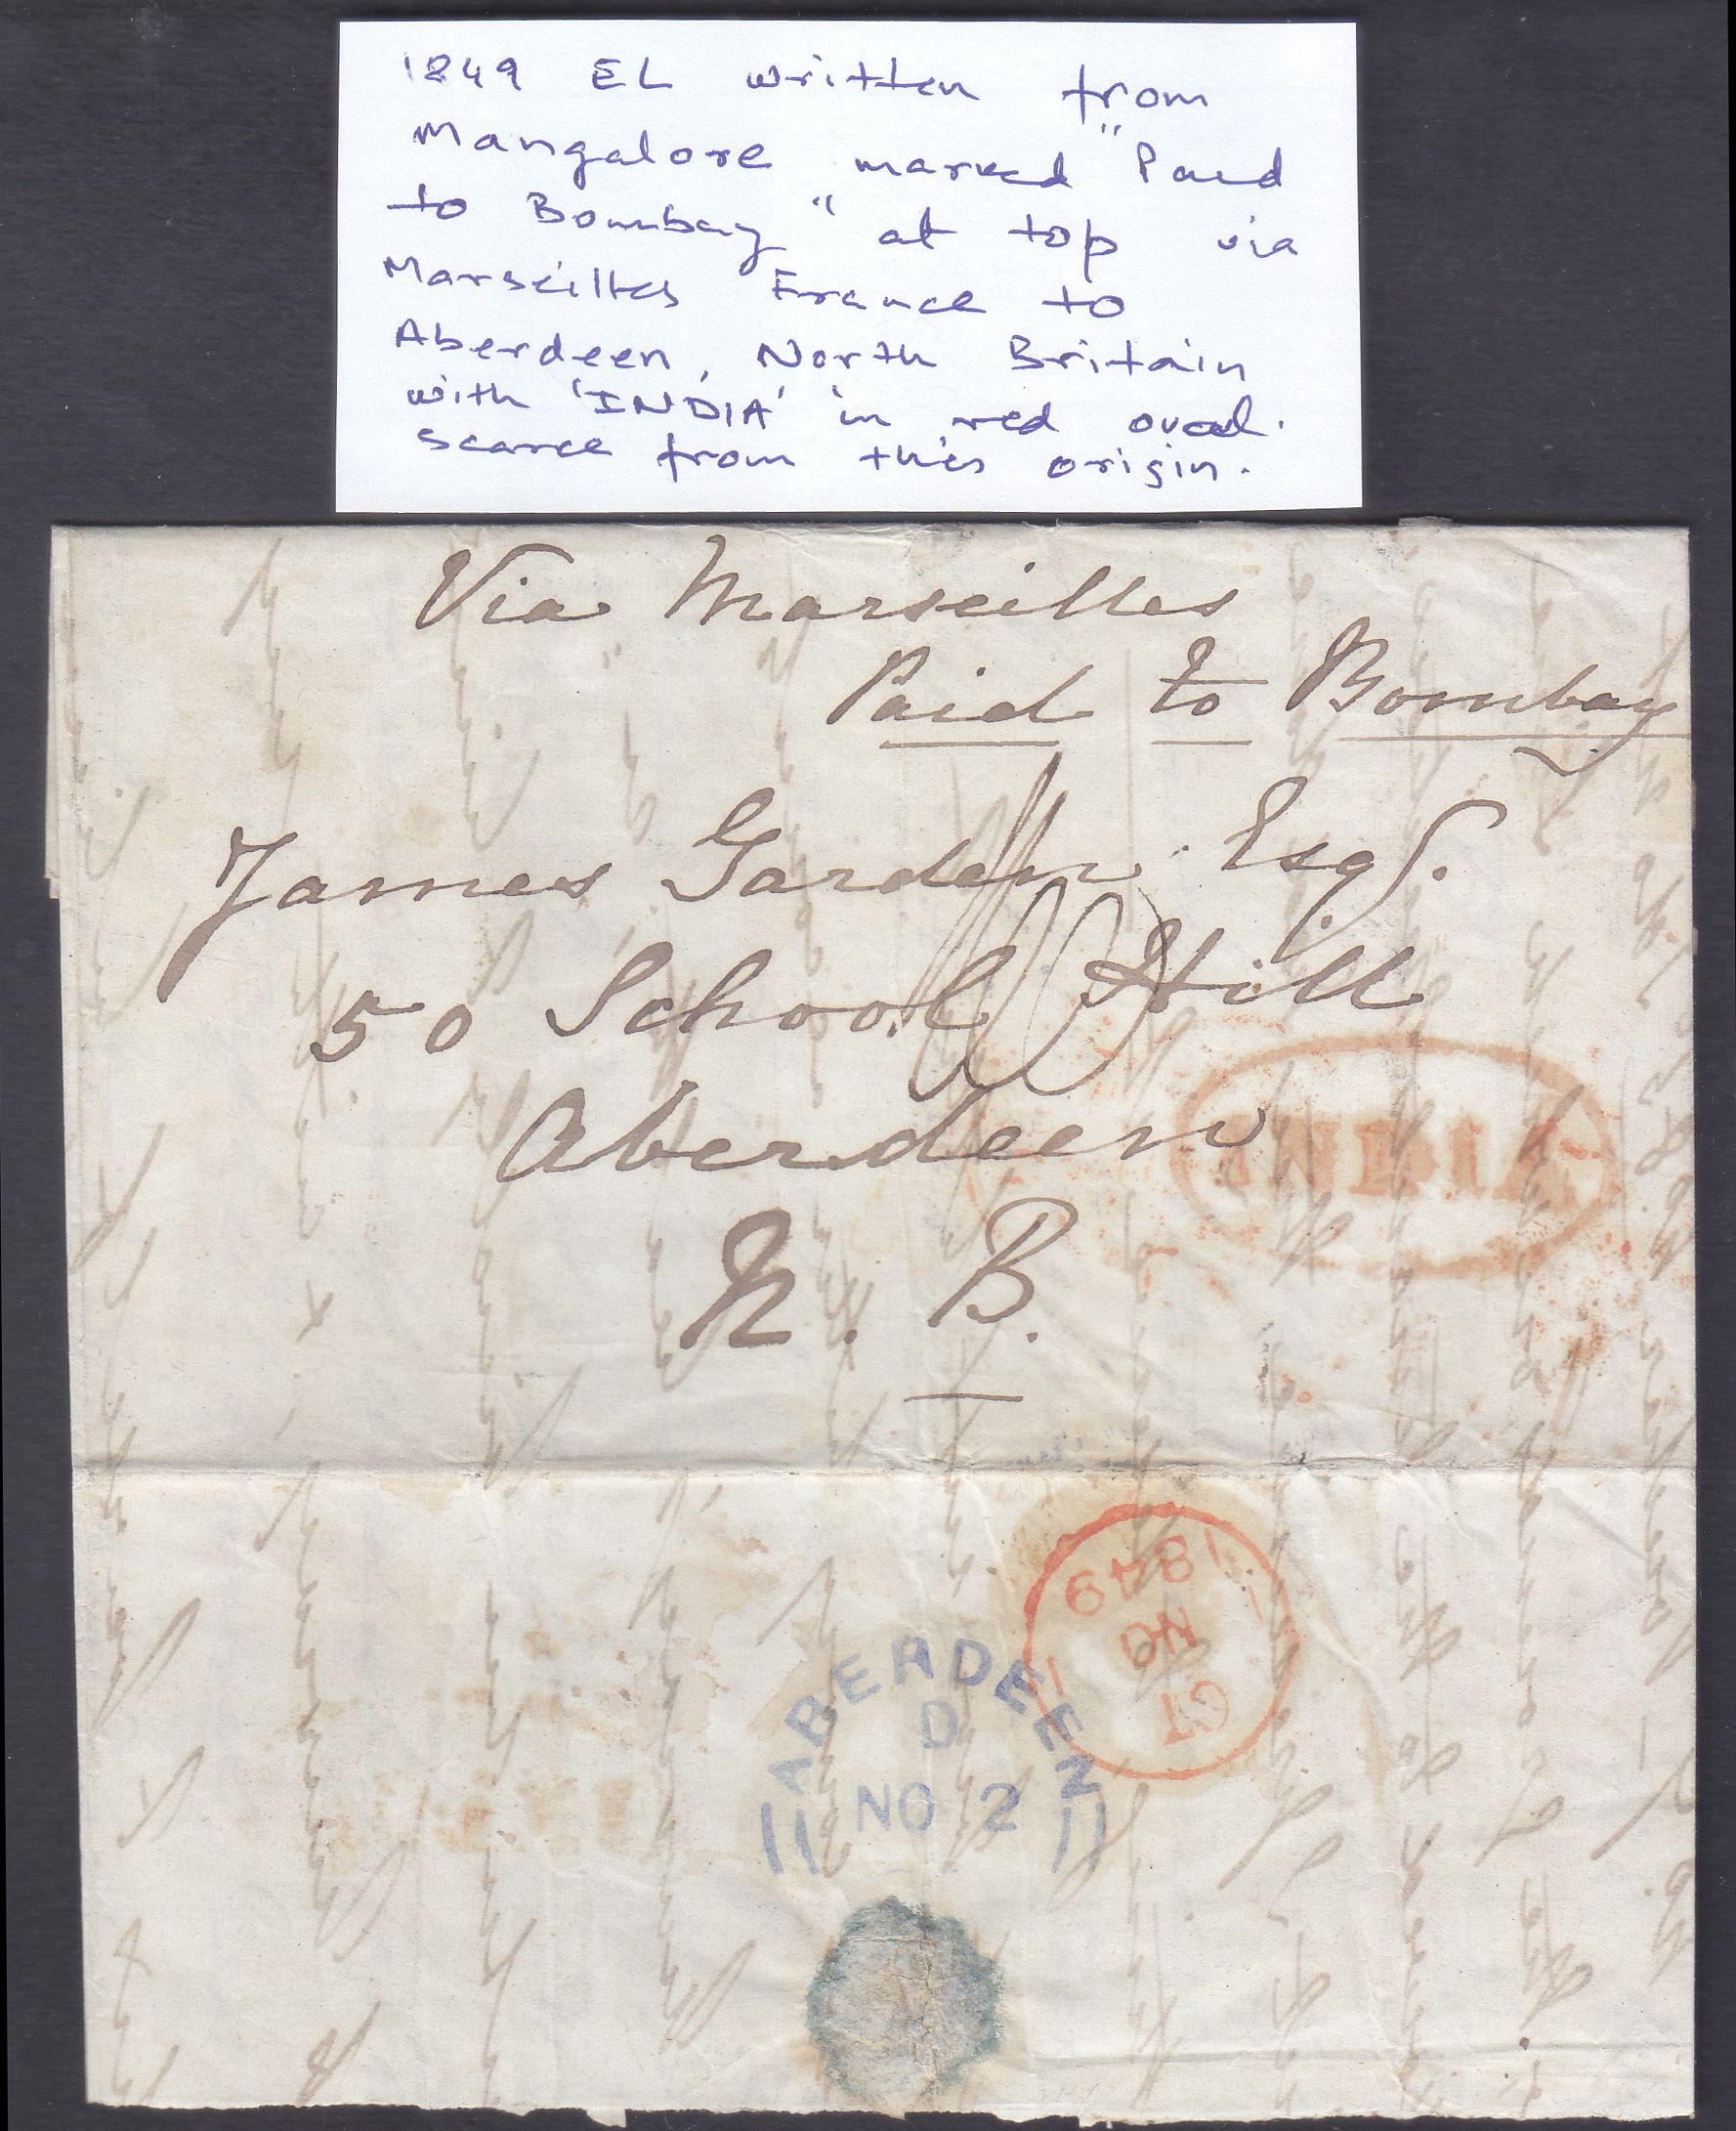 1849 EL written from
Mangalore marked "Paid
to Bombay" at top via
Marseilles France to
Aberdeen, North Britain
with 'INDIA' in red oval.
scarce from this origin.
Via Marseilles
Paid to Bombay
James Garden Esqr.
50 School Hill
Aberdeen
INDIA
N. B.
1849
NO
CT
ABERDEEN
D
NO 2